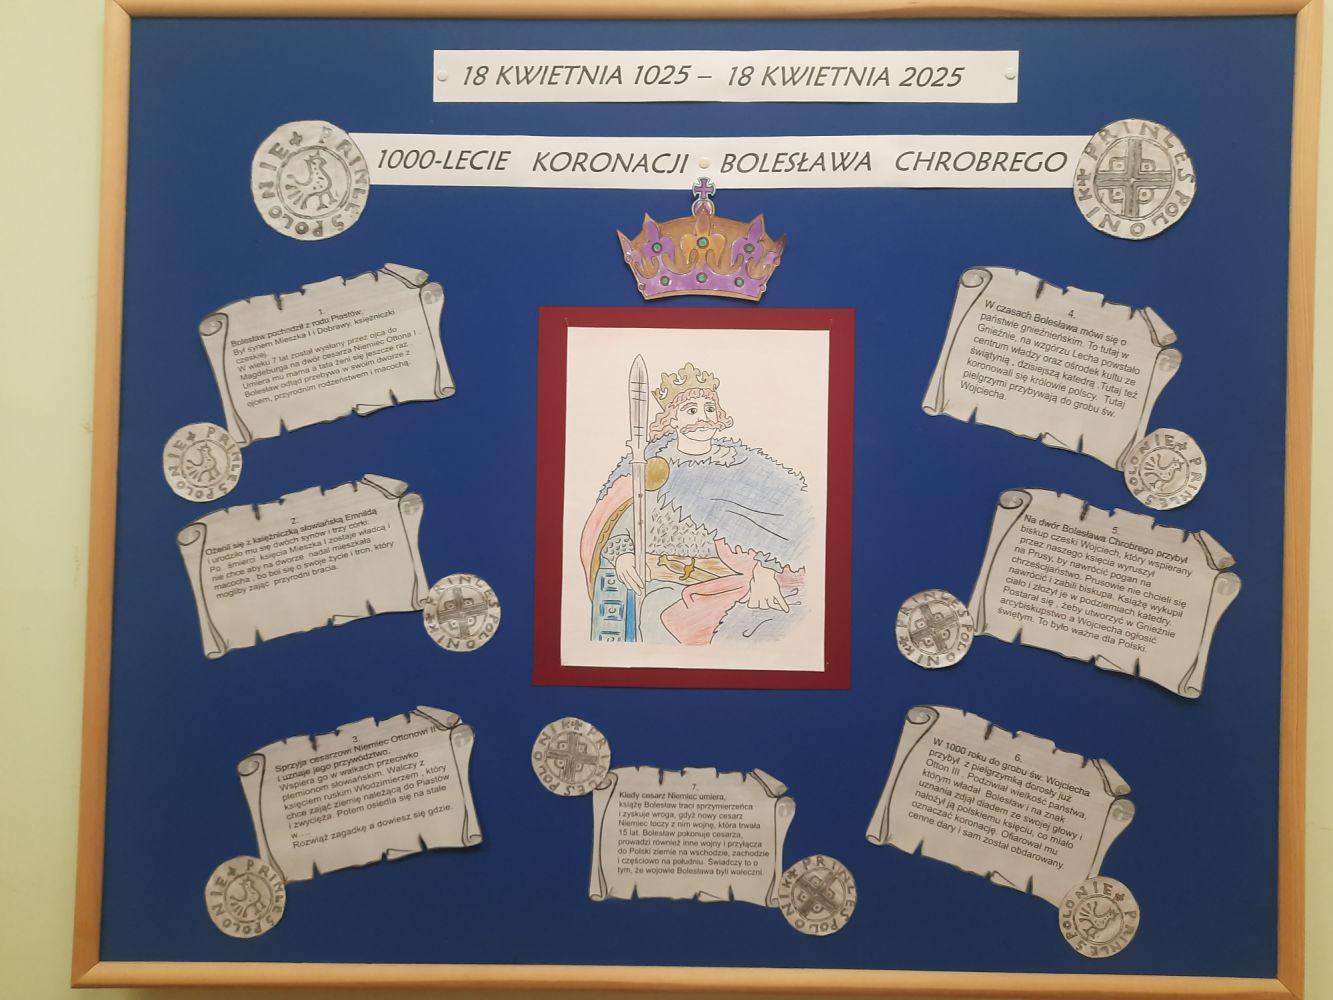 18 KWIETNIA 1025 – 18 KWIETNIA 2025
1000-LECIE KORONACJI BOLESŁAWA CHROBREGO
PRINCES POLONIE
PRINCES POLONIE
1.
Bolesław pochodził z rodu Piastów.
Był synem Mieszka I i Dobrawy, księżniczki
czeskiej.
W wieku 7 lat został wysłany przez ojca do
Magdeburga na dwór cesarza Niemiec Ottona I .
Umiera mu mama a tata żeni się jeszcze raz .
Bolesław odtąd przebywa w swoim dworze z
ojcem, przyrodnim rodzeństwem i macochą.
2.
Ożenił się z księżniczką słowiańską Emnildą
i urodziło mu się dwóch synów i trzy córki.
Po śmierci księcia Mieszka I zostaje władcą i
nie chce aby na dworze nadal mieszkała
macocha , bo boi się o swoje życie i tron, który
mogliby zająć przyrodni bracia.
3.
Sprzyja cesarzowi Niemiec Ottonowi II
i uznaje jego przywództwo.
Wspiera go w walkach przeciwko
plemionom słowiańskim. Walczy z
księciem ruskim Włodzimierzem , który
chce zająć ziemię należącą do Piastów
i zwycięża. Potem osiedla się na stałe
w.....
Rozwiąż zagadkę a dowiesz się gdzie.
4.
W czasach Bolesława mówi się o
państwie gnieźnieńskim. To tutaj w
Gnieźnie, na wzgórzu Lecha powstało
centrum władzy oraz ośrodek kultu ze
świątynią , dzisiejszą katedrą . Tutaj też
koronowali się królowie polscy. Tutaj
pielgrzymi przybywają do grobu św.
Wojciecha.
5.
Na dwór Bolesława Chrobrego przybył
biskup czeski Wojciech, który wspierany
przez naszego księcia wyruszył
na Prusy, by nawrócić pogan na
chrześcijaństwo. Prusowie nie chcieli się
nawrócić i zabili biskupa. Książę wykupił
ciało i złożył je w podziemiach katedry.
Postarał się , żeby utworzyć w Gnieźnie
arcybiskupstwo a Wojciecha ogłosić
świętym. To było ważne dla Polski.
6.
W 1000 roku do grobu św. Wojciecha
przybył z pielgrzymką dorosły już
Otton III . Podziwiał wielkość państwa,
którym władał Bolesław i na znak
uznania zdjął diadem ze swojej głowy i
nałożył ją polskiemu księciu, co miało
oznaczać koronację. Ofiarował mu
cenne dary i sam został obdarowany.
7.
Kiedy cesarz Niemiec umiera,
książę Bolesław traci sprzymierzeńca
i zyskuje wroga, gdyż nowy cesarz
Niemiec toczy z nim wojnę, która trwała
15 lat. Bolesław pokonuje cesarza,
prowadzi również inne wojny i przyłącza
do Polski ziemie na wschodzie, zachodzie
i częściowo na południu. Świadczy to o
tym, że wojowie Bolesława byli waleczni.